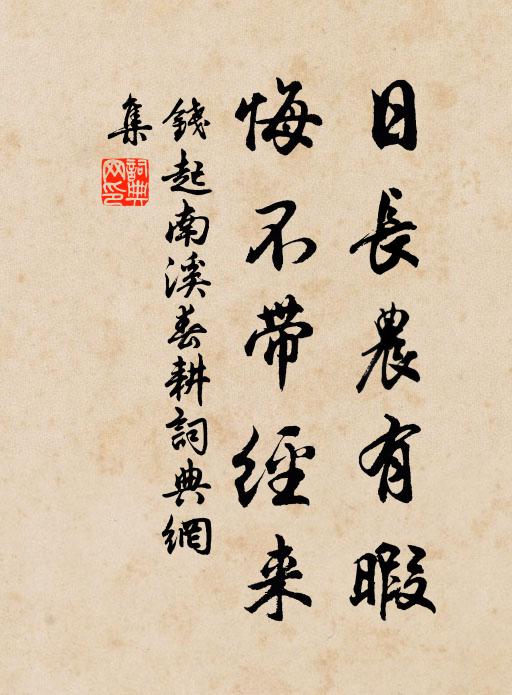 日長農有暇
悔不带經来
錢起南溪春耕詞典網
集
詞典网印